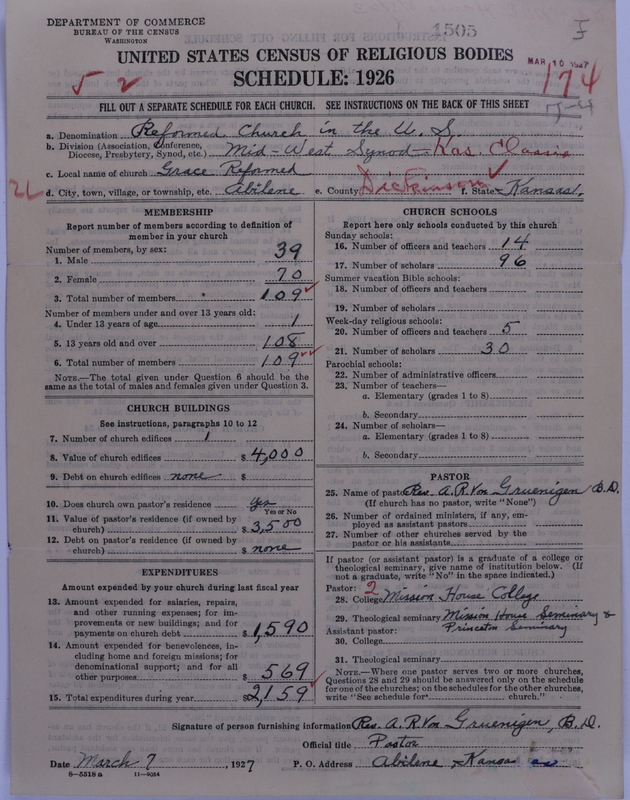 DEPARTMENT OF COMMERCE
BUREAU OF THE CENSUS
WASHINGTON
1505
I
UNITED STATES CENSUS OF RELIGIOUS BODIES
MAR 10 1927
SCHEDULE: 1926
174
FILL OUT A SEPARATE SCHEDULE FOR EACH CHURCH. SEE INSTRUCTIONS ON THE BACK OF THIS SHEET
a. Denomination Reformed Church in the U. S.
b. Division (Association, Conference, Diocese, Presbytery, Synod, etc.) Mid-West Synod - Kas. Classis
c. Local name of church Grace Reformed
d. City, town, village, or township, etc. Abilene e. County Dickinson f. State Kansas.
MEMBERSHIP
Report number of members according to definition of
member in your church
Number of members, by sex:
1. Male 39
2. Female 70
3. Total number of members 109
Number of members under and over 13 years old:
4. Under 13 years of age 1
5. 13 years old and over 108
6. Total number of members 109
NOTE.—The total given under Question 6 should be
same as the total of males and females given under Question 3.
CHURCH BUILDINGS
See instructions, paragraphs 10 to 12
7. Number of church edifices 1
8. Value of church edifices $ 4,000
9. Debt on church edifices none $
10. Does church own pastor's residence yes
Yes or No
11. Value of pastor's residence (if owned by
church) $ 3,500
12. Debt on pastor's residence (if owned by
church) $ none
EXPENDITURES
Amount expended by your church during last fiscal year
13. Amount expended for salaries, repairs,
and other running expenses; for im-
provements or new buildings; and for
payments on church debt $ 1,590
14. Amount expended for benevolences, in-
cluding home and foreign missions; for
denominational support; and for all
other purposes $ 569
15. Total expenditures during year $ 2,159
CHURCH SCHOOLS
Report here only schools conducted by this church
Sunday schools:
16. Number of officers and teachers 14
17. Number of scholars 96
Summer vacation Bible schools:
18. Number of officers and teachers
19. Number of scholars
Week-day religious schools:
20. Number of officers and teachers 5
21. Number of scholars 30
Parochial schools:
22. Number of administrative officers
23. Number of teachers—
a. Elementary (grades 1 to 8)
b. Secondary
24. Number of scholars—
a. Elementary (grades 1 to 8)
b. Secondary
PASTOR
25. Name of pastor Rev. A. R. Von Gruenigen B. D.
(If church has no pastor, write "None")
26. Number of ordained ministers, if any, em-
ployed as assistant pastors
27. Number of other churches served by the
pastor or his assistants
If pastor (or assistant pastor) is a graduate of a college or
theological seminary, give name of institution below. (If
not a graduate, write "No" in the space indicated.)
Pastor: 2
28. College Mission House College
29. Theological seminary Mission House Seminary &
Princeton Seminary
Assistant pastor:
30. College
31. Theological seminary
NOTE.—Where one pastor serves two or more churches,
Questions 28 and 29 should be answered only on the schedule
for one of the churches; on the schedules for the other churches,
write "See schedule for church."
Signature of person furnishing information Rev. A. R. Von Gruenigen, B. D.
Official title Pastor
Date March 7, 1927 P. O. Address Abilene, Kansas
8—5518 a 11—9064